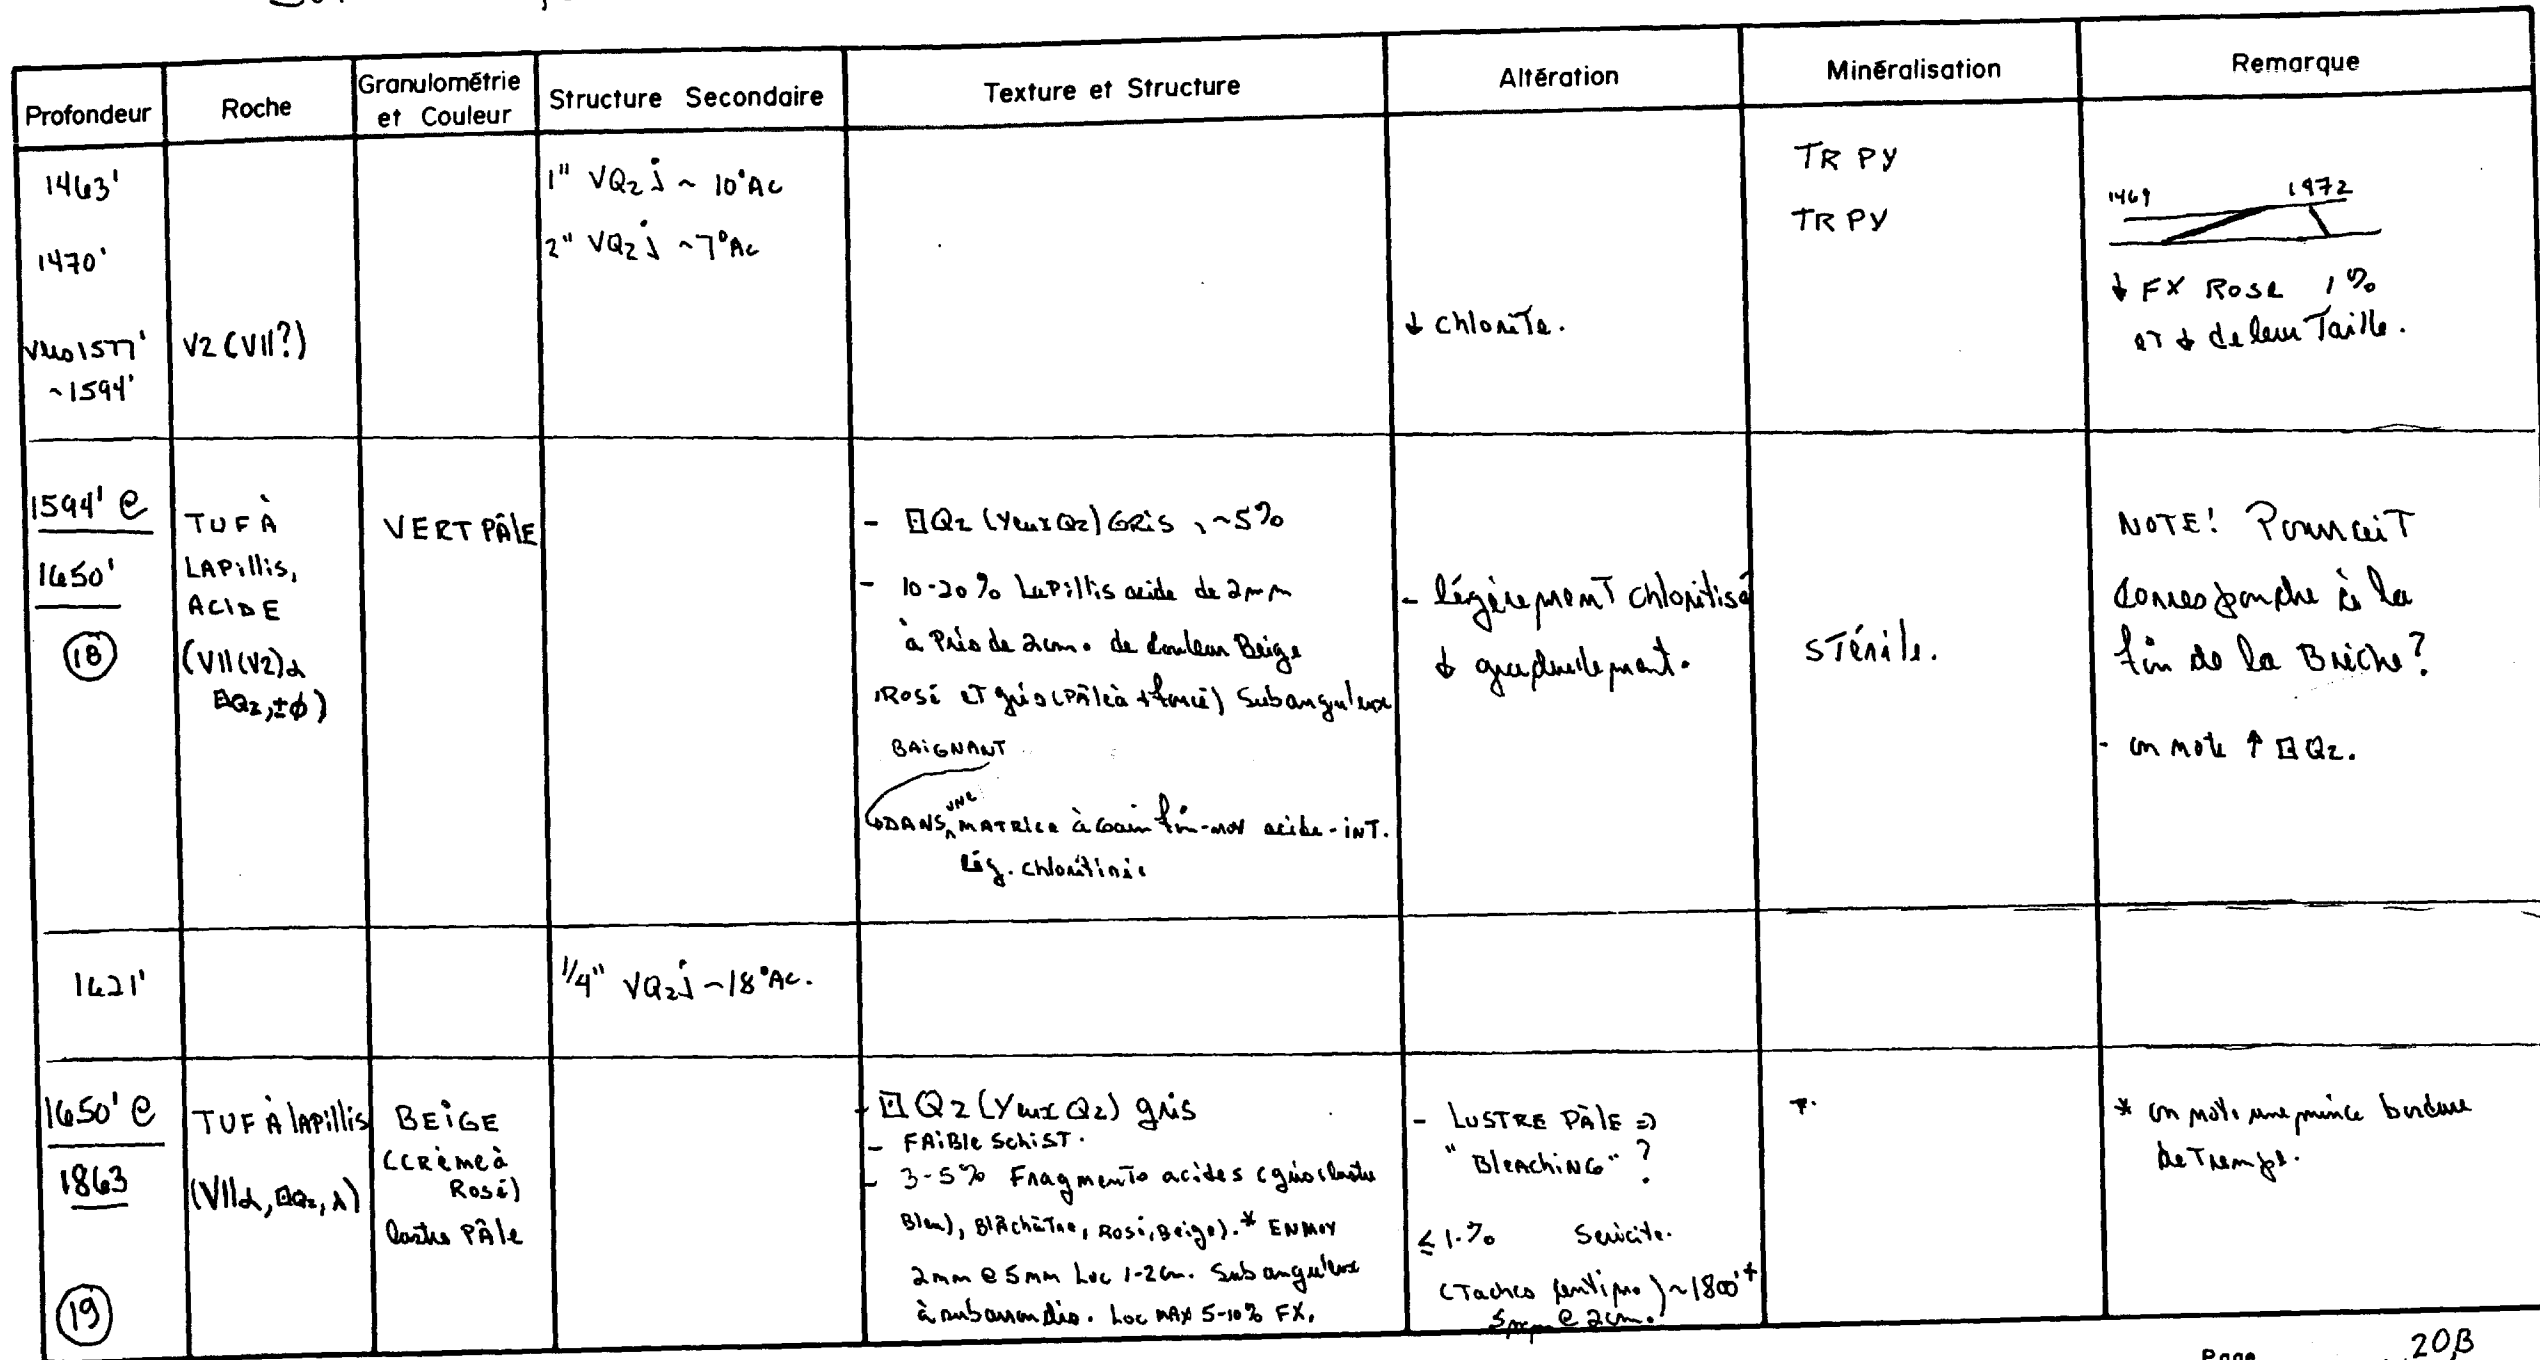 Profondeur
Roche
Granulométrie
et Couleur
Structure Secondaire
Texture et Structure
Altération
Minéralisation
Remarque
1463'
1" VQz j ~ 10°Ac
TR PY
1469 1472
1470'
2" VQz j ~7°Ac
TR PY
vers 1577'
~1594'
V2 (V11?)
↓ chlorite.
↓ FX Rose 1%
et ↓ de leur Taille.
1594' @
1650'
18
TUF À
LAPillis,
ACIDE
(V11(V2)α
⊡Qz, ±φ)
VERT PÂlE
- ⊡Qz (Yeux Qz) GRiS, ~5%
- 10-20% LaPillis acide de 2mm
à Près de 2cm. de couleur Beige
,Rosé et gris (Pâle à + foncé) Subanguleux
BAiGNANT
DANS UNE MATRice à Grain fin-moy acide-iNT.
Lég. chloritisée
- légèrement chloritisé
↓ graduellement.
STérile.
NOTE! Pourrait
correspondre à la
fin de la Brèche?
- on note ↑ ⊡ Qz.
1621'
1/4" VQz j ~18°Ac.
1650' @
1863
19
TUF À lAPillis
(V11α, ⊡Qz, λ)
BEiGE
(CRèmeà
Rosé)
lustre PÂle
- ⊡ Qz (Yeux Qz) gris
- FAiBle SchiST.
- 3-5% Fragments acides (gris(lustre
Bleu), Blâchâtre, Rosé, Beige).* EN MOY
2mm @ 5mm Loc 1-2cm. Subanguleux
à subarrondis. Loc MAX 5-10% FX.
- LUSTRE PÂlE ⇒
"BleAchiNG"?
≤ 1.% Sericite.
(Taches ) ~1800'+
5mm @ 2cm.
* on note une mince bordure
de Trempe.
Page
20B